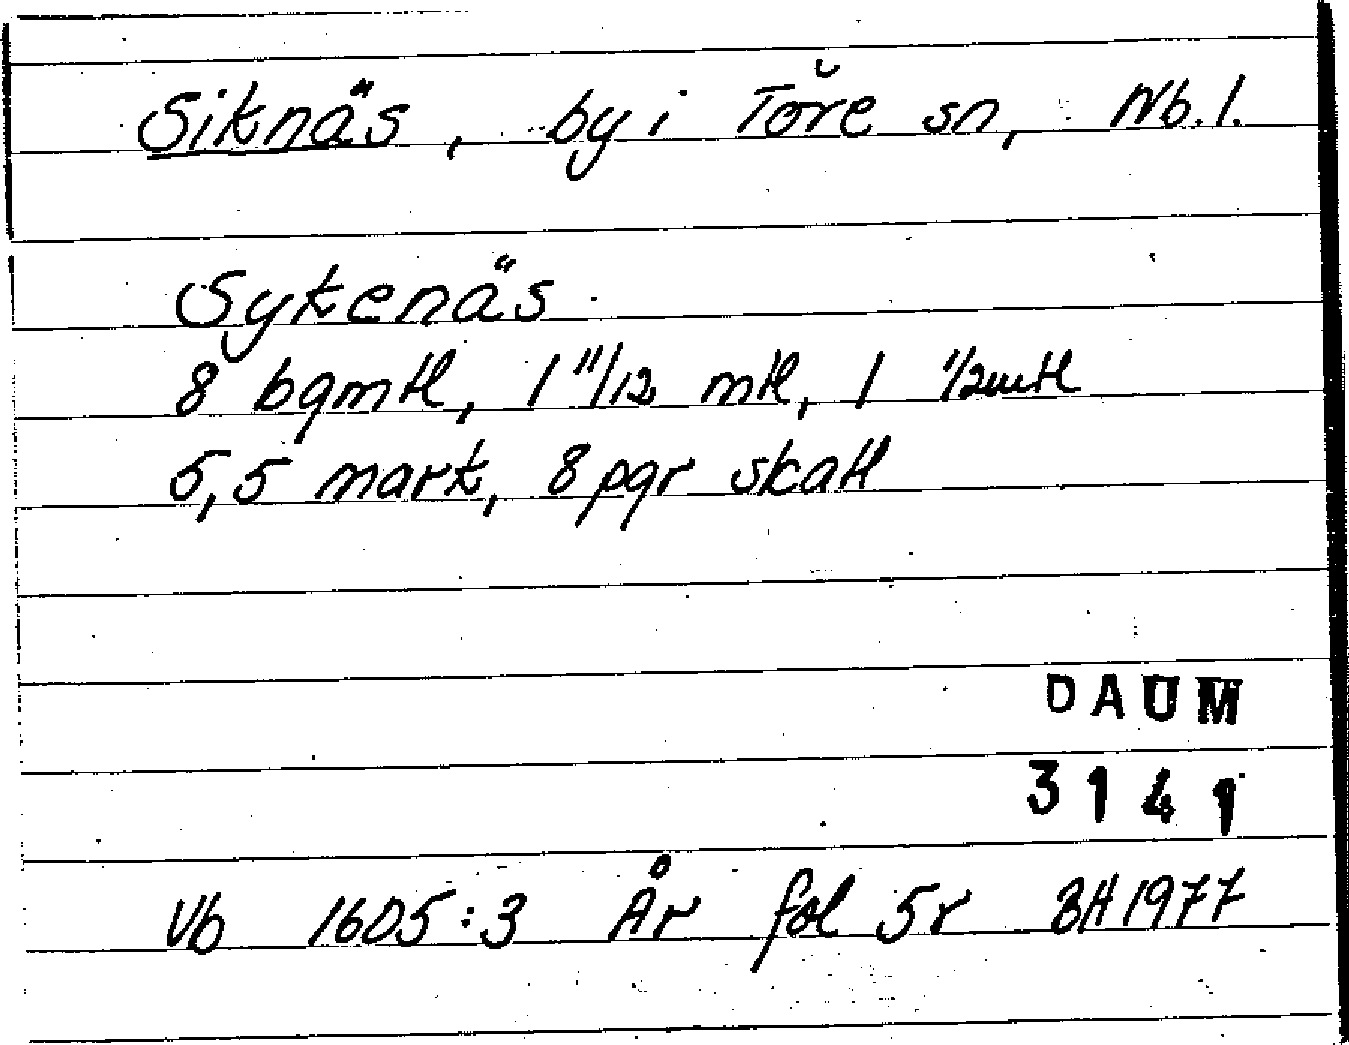 Siknäs, by i Töre sn, Nb. l.
Sykenäs
8 bgmtl, 1 11/12 mtl, 1 1/2 mtl
5,5 mark, 8 pgr skatt
DAUM
3141
Vb 1605:3 År fol 5r BH 1977